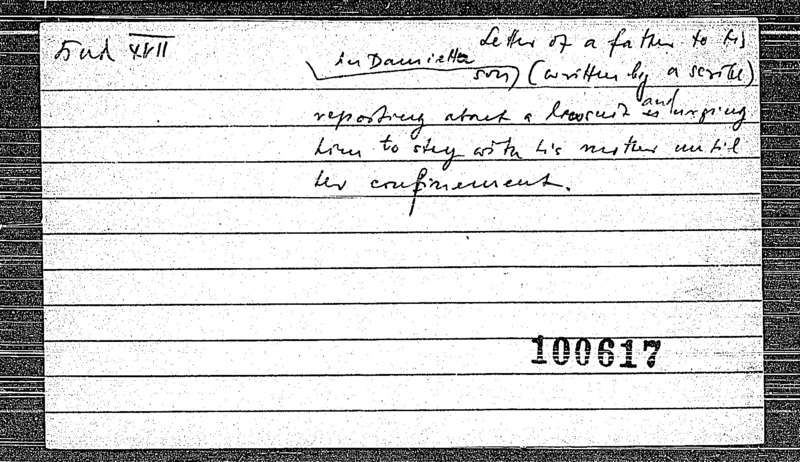 Letter of a father to his
in Damietta
son) (written by a scribe)
reporting about a lawsuit and urging
him to stay with his mother until
her confinement.
100617